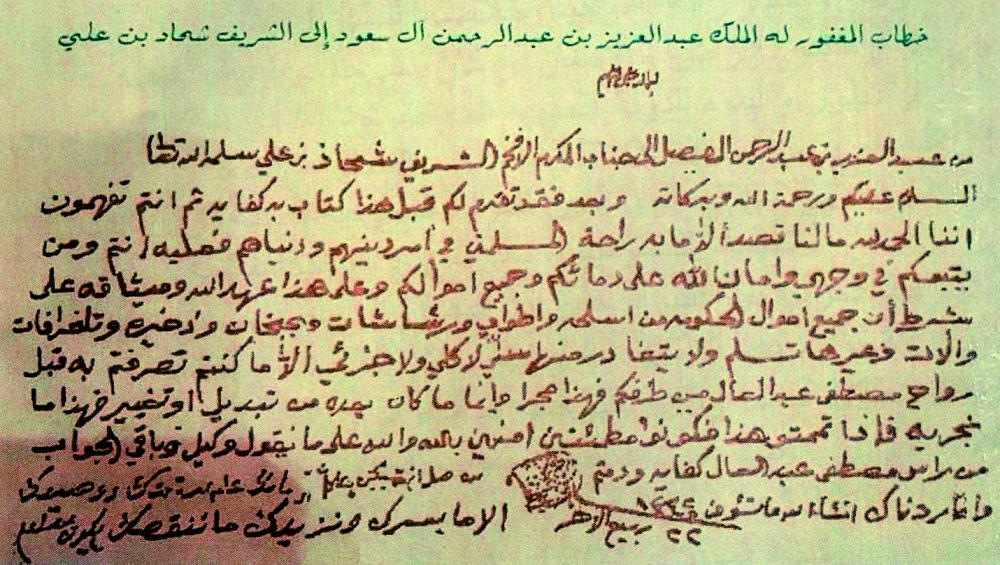 خطاب المغفور له الملك عبدالعزيز بن عبدالرحمن آل سعود إلى الشريف شحاد بن علي
من عبد العزيز بن عبد الرحمن الفيصل الى جناب المكرم الافخم الشريف شحاذ بن علي سلمه الله تعالى
السلام عليكم ورحمة الله وبركاته وبعد فقد تقدم لكم قبل هذا كتاب به كفايه ثم انتم تفهمون
اننا الحمد لله مالنا قصد الا ما به راحة المسلمين في أمر دينهم ودنياهم فعليه انتم ومن
يتبعكم في وجهي وامان الله على دمائكم وجميع اموالكم وعلى هذا عهد الله وميثاقه على
شرط أن جميع اموال الحكومه من اسلحه واطواب ورشاشات وجبخان وذخيره وتلغرافات
والات وغيرها تسلم ولا يتغادر منها شي لا كلي ولا جزئي الا ما كنتم تصرفتم به قبل
رواح مصطفى عبد العال من طرفكم فهذا مجرا واما ما كان بعده من تبديل او تغيير فهذا ما
نجريه فاذا تممتو هذا فكونوا مطمئنين امنين بالله والله على ما نقول وكيل وباقي الجواب
من راس مصطفى عبد العال كفايه ودمتم
وانا اردناك انشاء الله ما تشوف
الا ما يسرك ونزيدك ما ننقصك
١٣٤٤
٢٢ ربيع الاخر